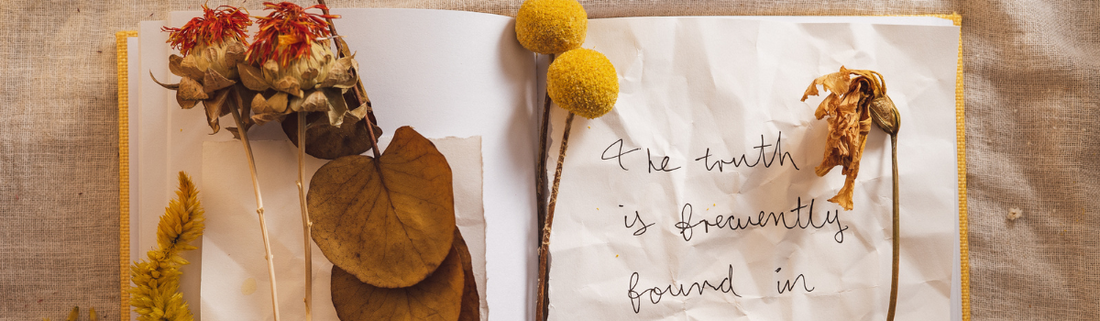 The truth
is frecuently
found in